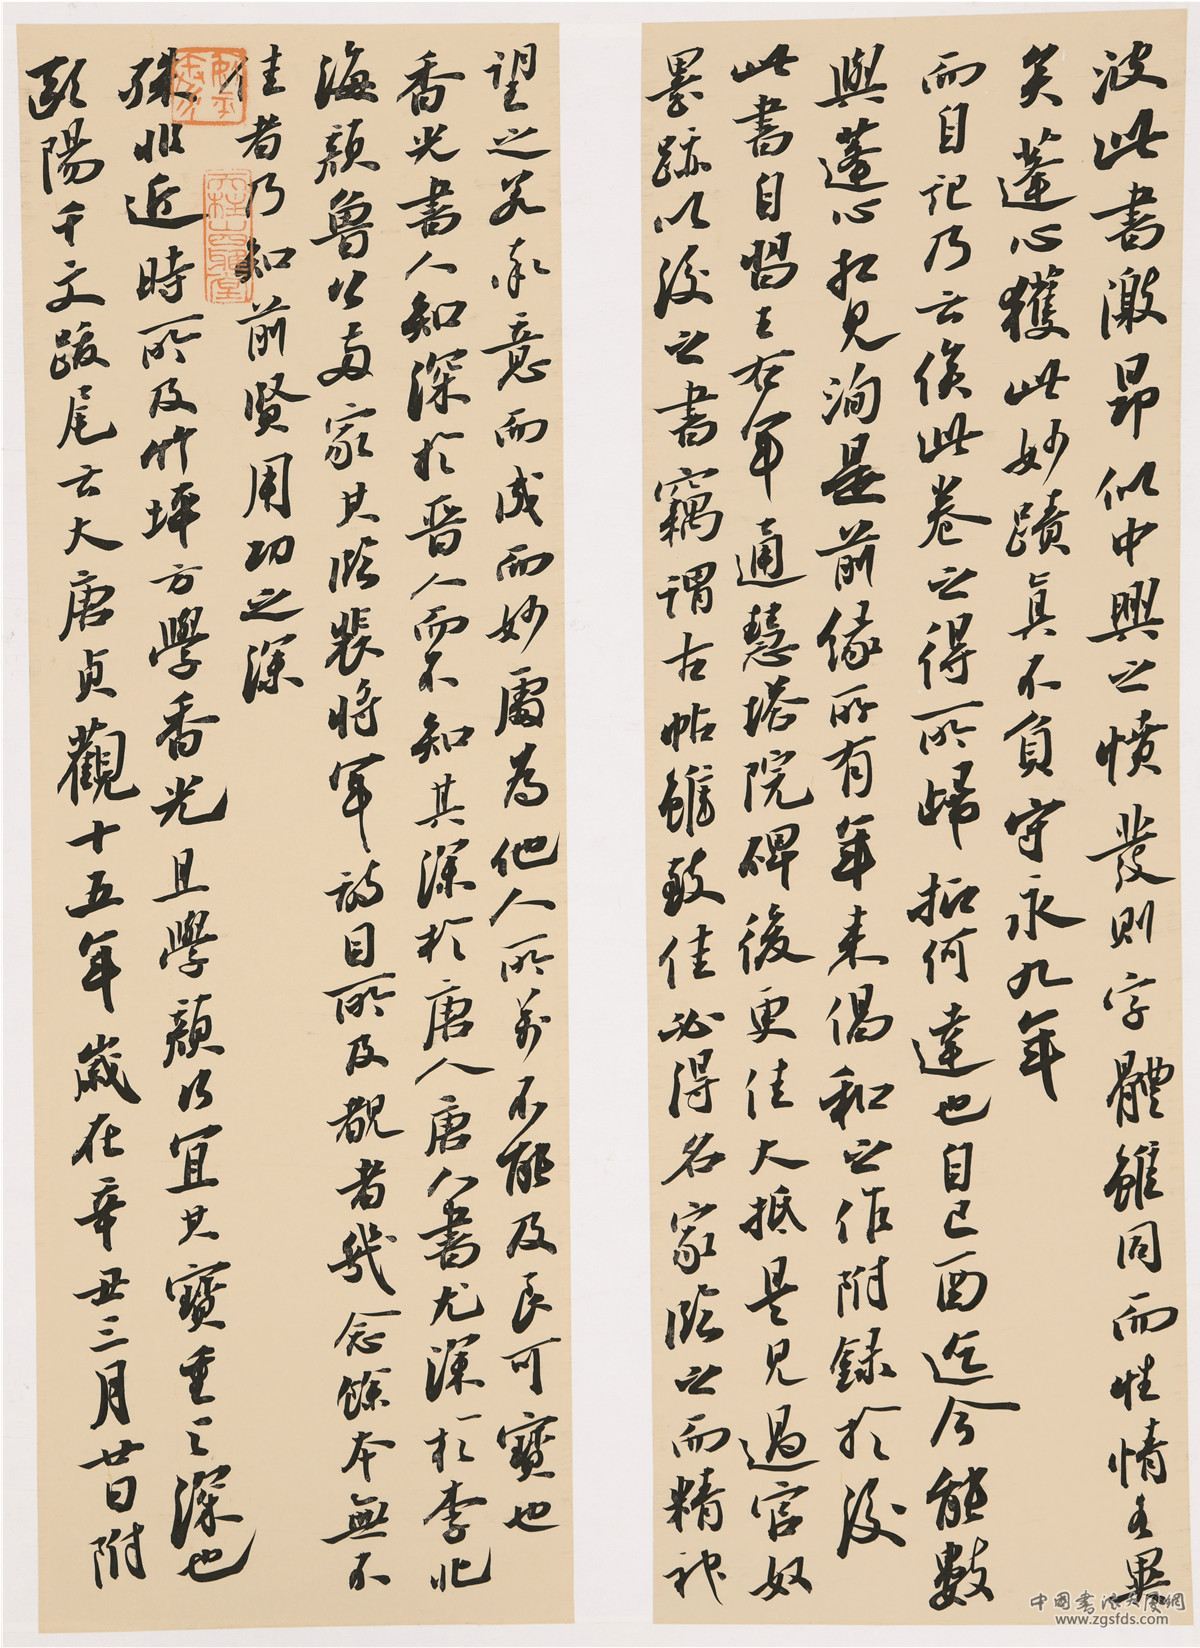 波此書激昂似中興之憤發則字體雖同而性情多異
矣蓮心獲此妙蹟真不負守永九年
而自記乃云俟此卷之得所歸抑何達也自己酉迄今能數
與蓮心相見洵是前緣所有年年來倡和之作附錄於後
此書自惕王右軍通慧塔院碑後更佳大抵是見過官奴
墨跡以後之書竊謂古帖雖致佳必得名家臨之而精神
望之若率意而成而妙處為他人所萬不能及良可寶也
香光書人知深於晉人而不知其深於唐人唐人書尤深於李北
海顏魯公兩家其臨裴將軍詩目所及覩者幾念餘本無不
佳者乃知前賢用功之深
殊非近時所及竹坪方學香光且學顏公宜其寶重之深也
歐陽千文跋尾云大唐貞觀十五年歲在辛丑三月廿日附
中國書法大廈網
www.zgsfds.com